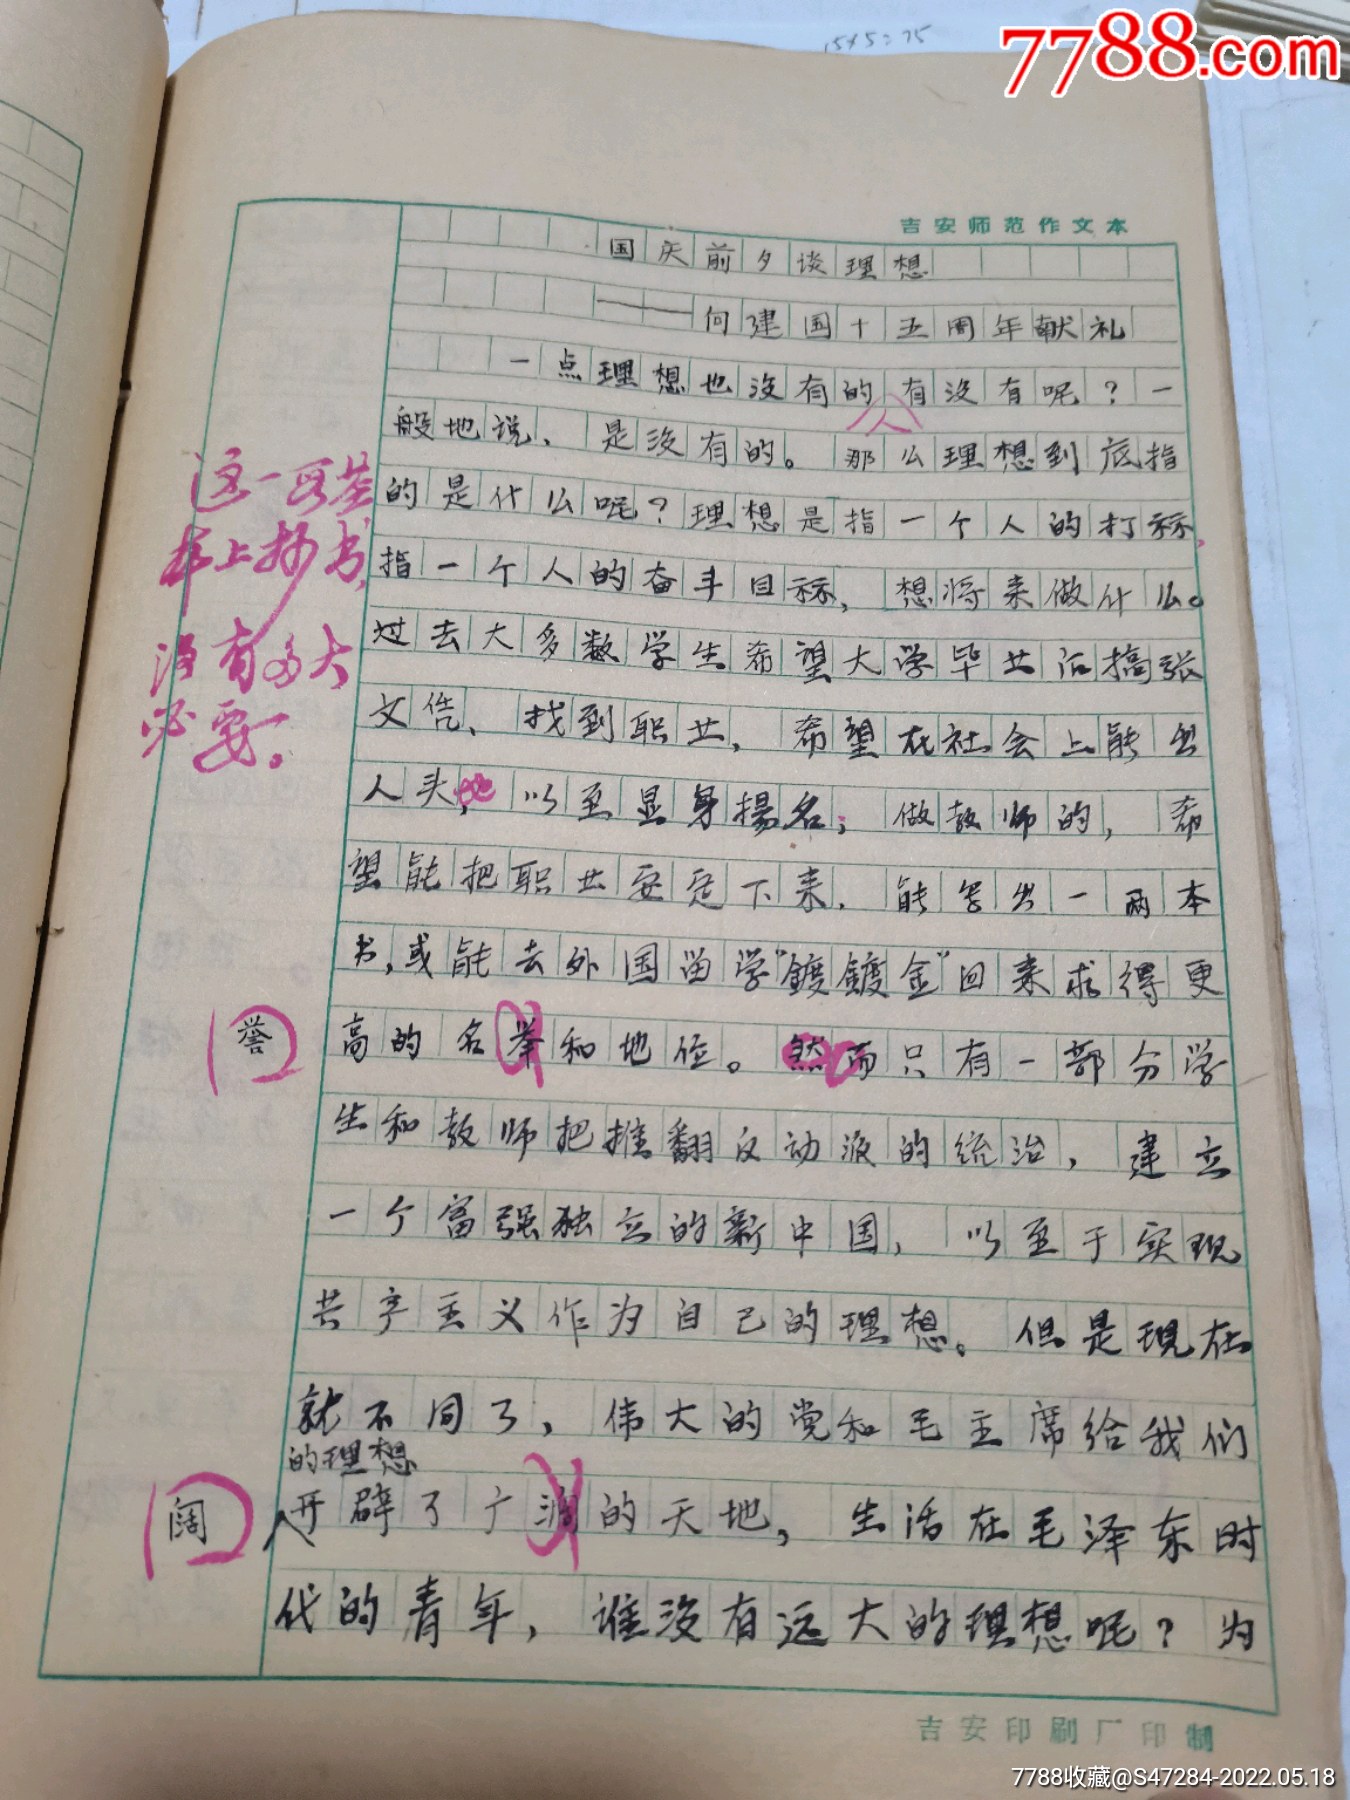 15×5=75
7788.com
吉安师范作文本
国庆前夕谈理想
——向建国十五周年献礼
一点理想也没有的有没有呢？一
人
般地说、是没有的。那么理想到底指
的是什么呢？理想是指一个人的打标,
指一个人的奋斗目标，想将来做什么。
过去大多数学生希望大学毕业后搞张
文凭、找到职业，希望在社会上能出
人头地，以至显身揚名；做教师的，希
望能把职业安定下来，能写出一两本
书,或能去外国留学"鍍鍍金"回来求得更
高的名举和地位。然而只有一部分学
生和教师把推翻反动派的统治，建立
一个富强独立的新中国，以至于实现
共产主义作为自己的理想。但是现在
就不同了，伟大的党和毛主席给我们
的理想
开辟了广濶的天地，生活在毛泽东时
代的青年，谁没有远大的理想呢？为
这一段基
本上抄书,
没有多大
必要。
誉
阔
吉安印刷厂印制
7788收藏@S47284-2022.05.18